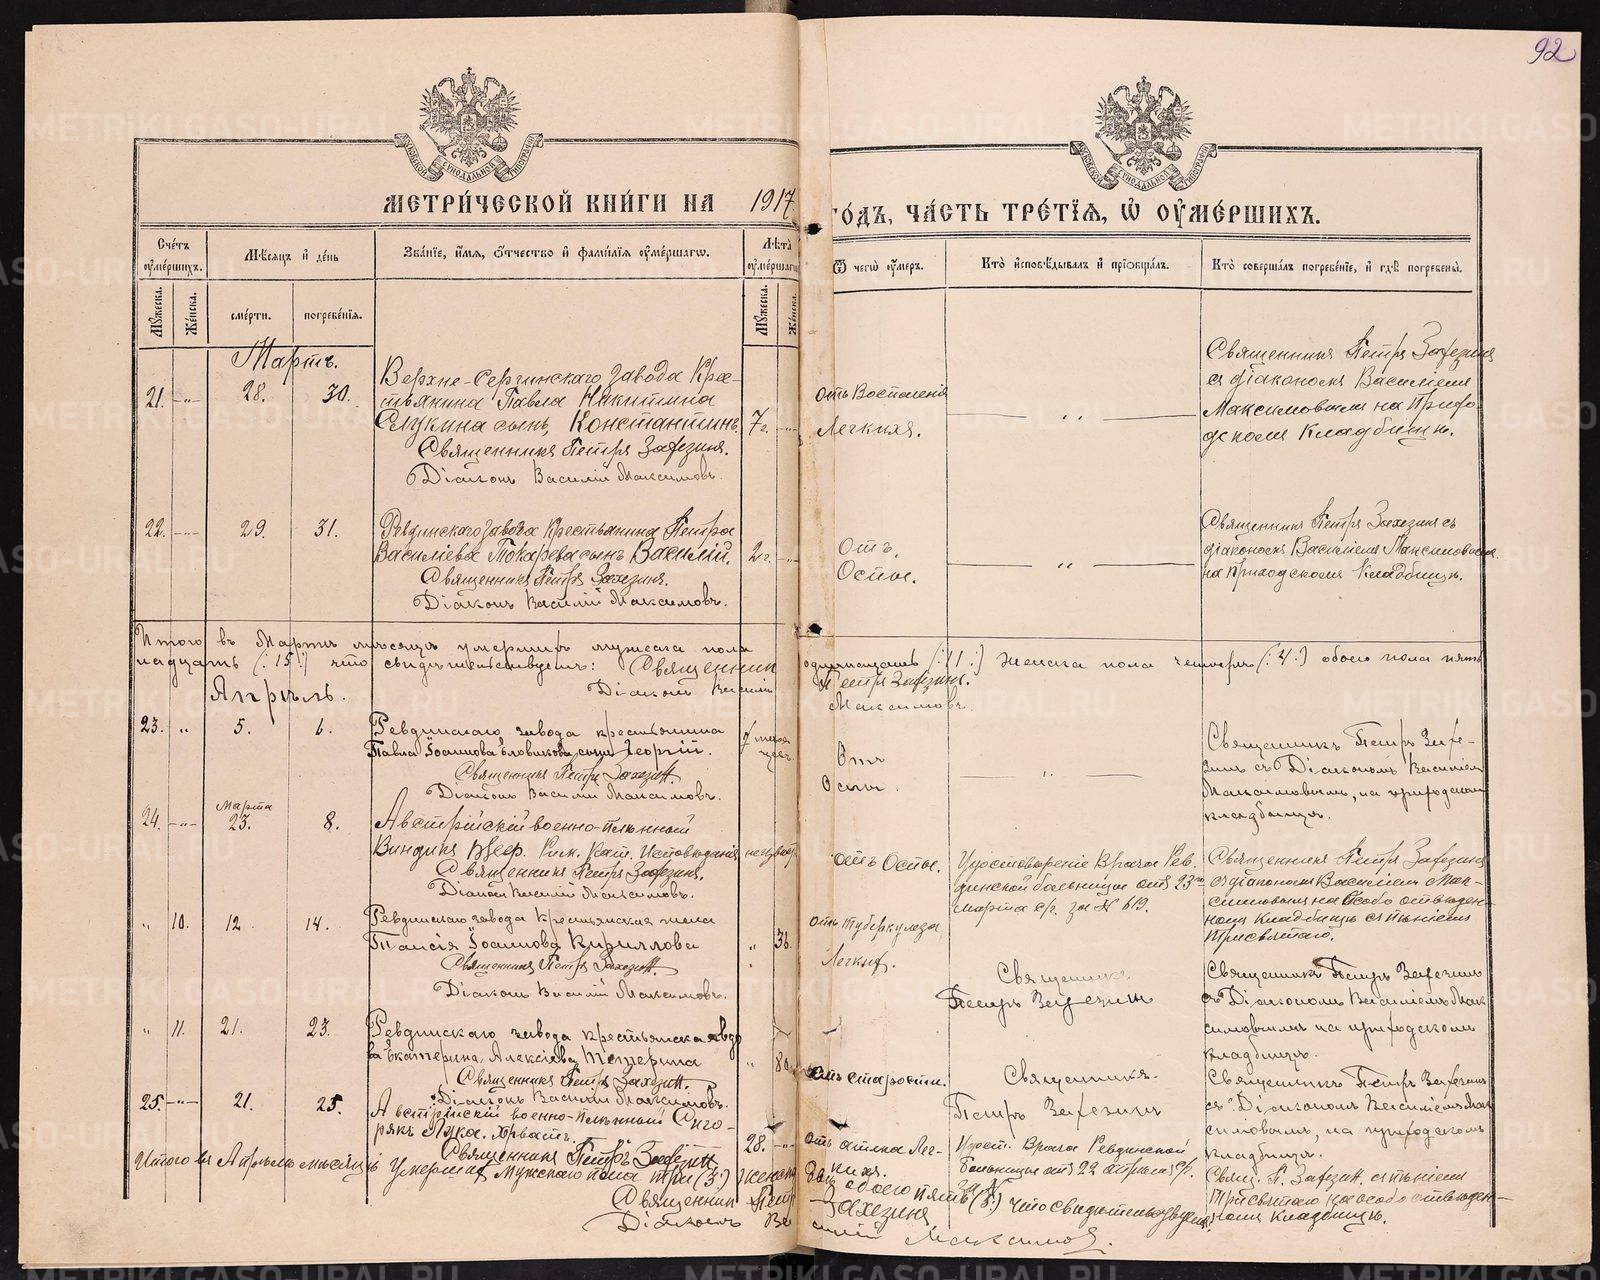 92
МЕТРИЧЕСКОЙ КНИГИ НА 1917 ГОДЪ, ЧАСТЬ ТРЕТІЯ, Ѡ ОУМЕРШИХЪ.
Счетъ оумершихъ.
Мѣсяцъ и день
Званіе, имя, отчество и фамилія оумершагѡ.
Лѣта оумершагѡ
Ѿ чегѡ оумеръ.
Кто исповѣдывалъ и пріобщалъ.
Кто совершалъ погребеніе, и гдѣ погребены.
Мужеска.
Женска.
смерти.
погребенія.
Мужеска.
Женска.
Мартъ.
21. -"- 28. 30.
Верхне-Сергинскаго завода Кре-
стьянина Павла Никитина
сынъ, Константинъ. 7 г. -"-
Священникъ Петръ Захезинъ.
Діаконъ Василій Максимовъ.
отъ Воспаленія
Легкихъ.
Священникъ Петръ Захезинъ
съ діакономъ Василіемъ
Максимовымъ на Прихо-
дскомъ Кладбищѣ.
22. -"- 29. 31.
Ревдинскаго завода Крестьянина Петра
Василіева Токарева сынъ Василій. 2 г. -"-
Священникъ Петръ Захезинъ.
Діаконъ Василій Максимовъ.
Отъ
Оспы.
Священникъ Петръ Захезинъ съ
діакономъ Василіемъ Максимовымъ
на Приходскомъ Кладбищѣ.
Итого въ Мартѣ мѣсяцѣ умершихъ мужеска пола одиннадцать (:11:) женска пола четыре (:4:) обоего пола пят-
надцать (:15:) что свидѣтельствуемъ: Священникъ Петръ Захезинъ.
Діаконъ Василій Максимовъ.
Апрѣль.
23. " 5. 6.
Ревдинскаго завода крестьянина
Павла Іоаннова сынъ Георгій.
Священникъ Петръ Захезинъ.
Діаконъ Василій Максимовъ.
Отъ
Оспы.
Священникъ Петръ Захе-
зинъ съ Діакономъ Василіем
Максимовымъ, на приходском
кладбищѣ.
24. -"- Марта 23. 8.
Австрійскій военно-плѣнный
Рим. Кат. Исповѣданія
Священникъ Петръ Захезинъ.
Діаконъ Василій Максимовъ.
отъ Оспы.
Удостовѣреніе Врача Рев-
динской больницы отъ 23го
марта с/г. за № 619.
Священникъ Петръ Захезинъ
съ діакономъ Василіемъ Мак-
симовымъ на особо отведен-
номъ Кладбищѣ съ пѣніемъ
Трисвятаго.
" 10. 12. 14.
Ревдинскаго завода Крестьянская жена
Таисія Іоаннова Кириллова
Священникъ Петръ Захезинъ.
Діаконъ Василій Максимовъ.
отъ туберкулеза
Легких.
Священникъ
Петръ Захезинъ
Священникъ Петръ Захезинъ
съ Діакономъ Василіемъ Мак-
симовымъ на приходскомъ
кладбищѣ.
" 11. 21. 23.
Ревдинскаго завода крестьянская вдо-
ва Екатерина Алексіева
Священникъ Петръ Захезинъ.
Діаконъ Василій Максимовъ.
отъ старости.
Священникъ
Петръ Захезинъ
Священникъ Петръ Захезинъ
съ Діакономъ Василіемъ Мак-
симовымъ, на приходскомъ
кладбищѣ.
25. -"- 21. 25.
Австрійскій военно-плѣнный
Лука. Хорватъ. 28. -"-
Священникъ Петръ Захезинъ
Удост. Врача Ревдинской
больницы отъ 22 апрѣля с/г.
за №
Свящ. П. Захезинъ, съ пѣніемъ
Трисвятаго на особо отведен-
номъ Кладбищѣ.
Итого въ Апрѣлѣ мѣсяцѣ Умерших Мужскаго пола три (3:) женска два обоего пять (5:) что свидѣтельствуемъ
Священникъ Петръ Захезинъ
Діаконъ Василій Максимовъ.